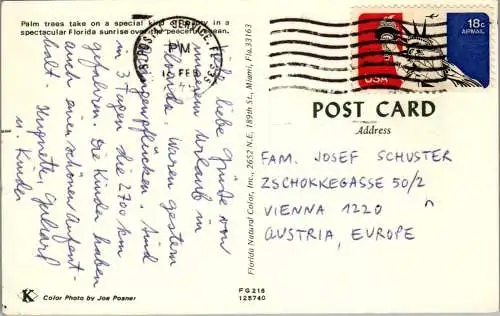 Palm trees take on a special kind of beauty in a
spectacular Florida sunrise over the peaceful ocean.
Viele liebe Grüße von
unserem Urlaub in
Florida. Waren gestern
Orangenpflücken. Sind
in 3 Tagen die 2700 km
gefahren. Die Kinder haben
auch einen schönen Aufent-
halt.
u. Kinder
K
Color Photo by Joe Posner
FG216
128740
Florida Natural Color, Inc., 2652 N.E. 189th St., Miami, Fla. 33163
PM
15 FEB
USA
18c
AIRMAIL
POST CARD
Address
FAM. JOSEF SCHUSTER
ZSCHOKKEGASSE 50/2
VIENNA 1220
AUSTRIA, EUROPE